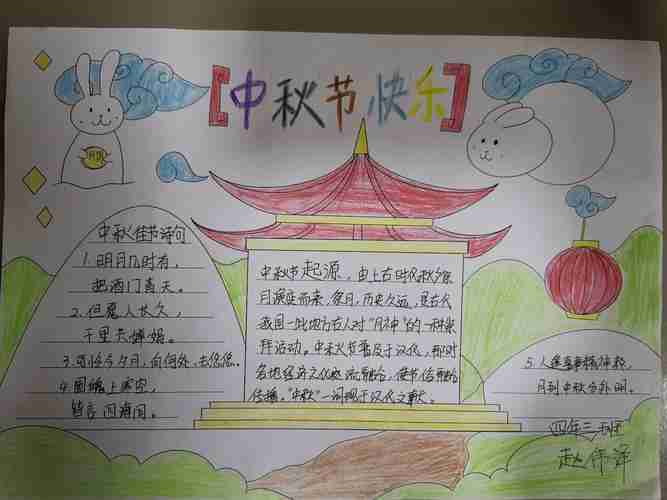 [中秋节快乐]
中秋佳节诗句
1.明月几时有,
把酒门青天。
2.但愿人长久,
千里共婵娟。
3.可怜今夕月,向何处、去悠悠。
4.圆魄上寒空,
皆言四海同。
中秋节起源,由上古时代秋夕祭
月演变而来,祭月,历史久远,是古代
我国一些地方古人对“月神”的一种崇
拜活动。中秋节普及于汉代,那时
各地经济文化交流融合,使节俗融合
传播。“中秋”一词现于汉代文献。
5.人逢喜事精神爽,
月到中秋分外明。
四年三班
赵伟泽